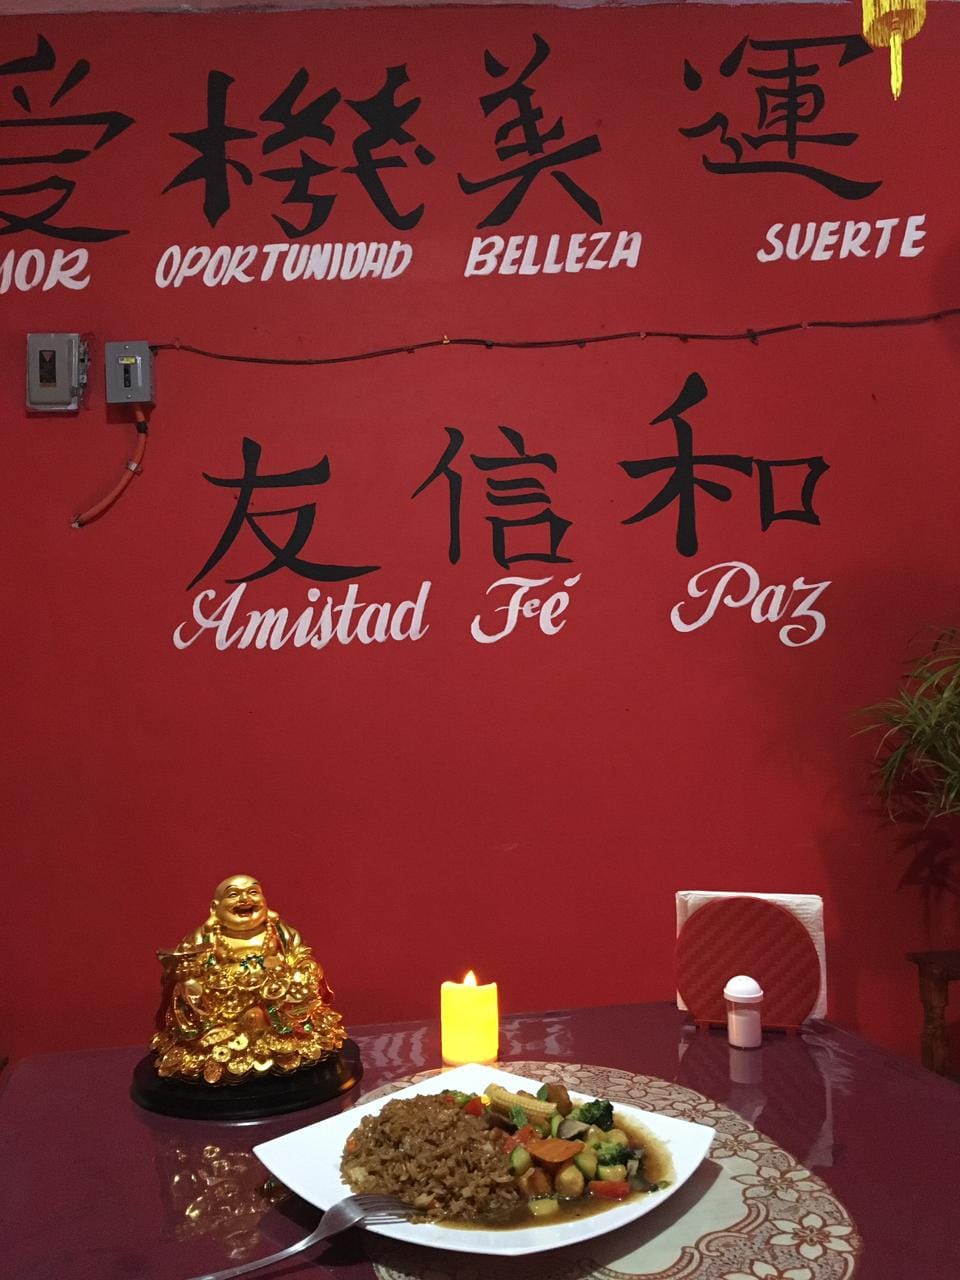 機 美 運
MOR OPORTUNIDAD BELLEZA SUERTE
友 信 和
Amistad Fé Paz